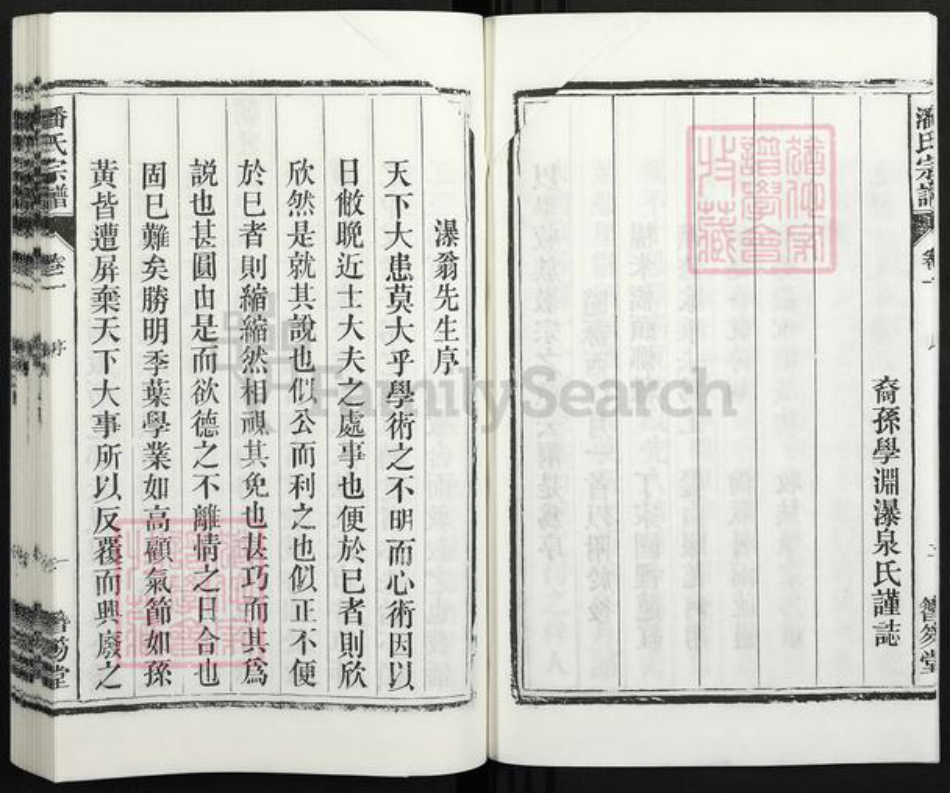 潘氏宗譜
卷一
裔孫學淵瀑泉氏謹誌
瀑翁先生序
天下大患莫大乎學術之不明而心術因以
日敝晚近士大夫之處事也便於已者則欣
欣然是就其說也似公而利之也似正不便
於已者則縮縮然相視其免也甚巧而其爲
說也甚圓由是而欲德之不離情之日合也
固已難矣勝明季葉學業如高顧氣節如孫
黃皆遭屏棄天下大事所以反覆而興廢之
潘氏宗譜
卷一
序
一
FamilySearch